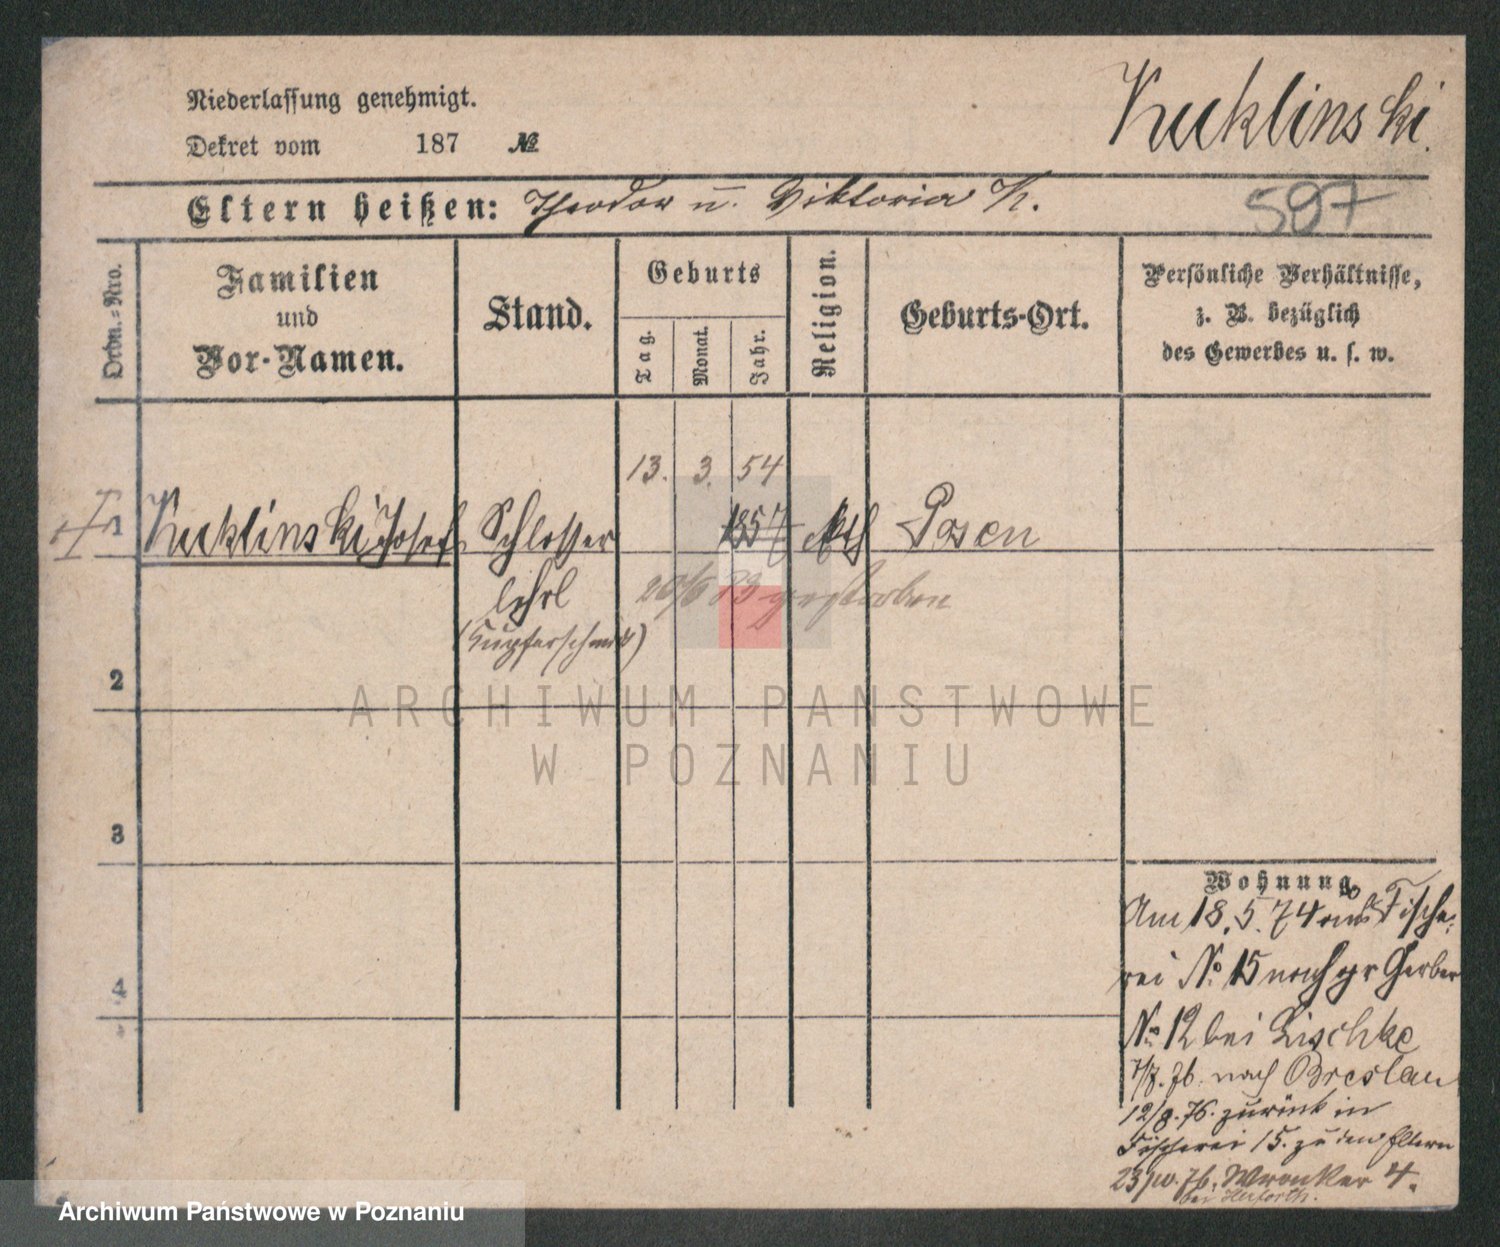 Niederlassung genehmigt.
Dekret vom 187 №
Kucklinski.
Eltern heißen: Theodor u. Viktoria K.
597
Ordn.-Nro.
Familien
und
Vor-Namen.
Stand.
Geburts
Tag.
Monat.
Jahr.
Religion.
Geburts-Ort.
Persönliche Verhältnisse,
z. B. bezüglich
des Gewerbes u. s. w.
13. 3. 54
1 Kucklinski Josef Schlosser 1857 kth Posen
lehrl 20/6 83 gestorben
(Kupferschmid)
2
ARCHIWUM PAŃSTWOWE
W POZNANIU
3
Wohnung
Am 18.5.74 aus Fische-
rei No 15 nach gr Gerber
No 12 bei Lischke
7/7. 76. nach Breslau
12/8. 76. zurück in
Fischerei 15. zu den Eltern
23/10. 76. Wronker 4.
bei
4
Archiwum Państwowe w Poznaniu